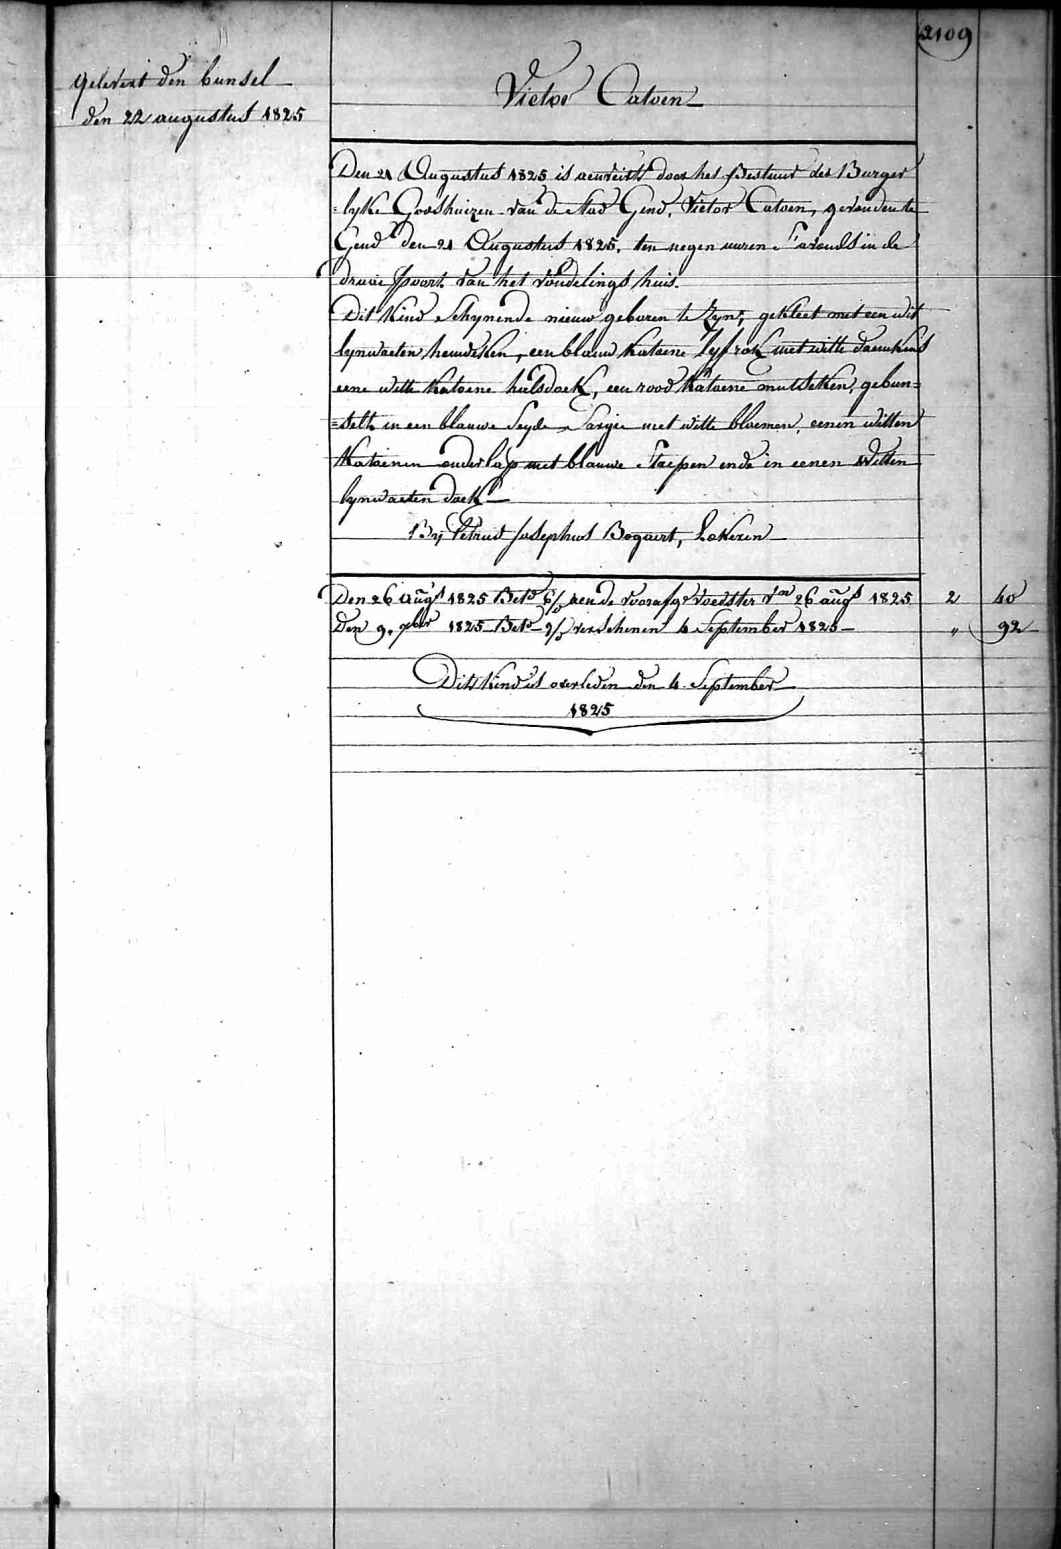 2109
gelevert den bunsel
den 22 augustus 1825
Victor Catoen
Den 21 Augustus 1825 is aenveird door het Bestuur der Burger
=lyke Godshuizen van de Stad Gend, Victor Catoen, gevonden te
Gend den 21 Augustus 1825, ten negen uuren S'avonds in de
draeie poort van het vondelings huis.
Dit Kind Schynende nieuw geboren te Zyn, gekleet met een wit
lynwaeten hemdeken, een blauw katoene lyfrok met witte
eene witte katoene halsdoek, een rood katoene mutseken, gebun=
=selt in een blauwe Seyde Sargie met witte bloemen, eenen witten
Katoenen onderlap met blauwe Striepen ende in eenen Witten
lynwaeten doek
By Petrus Josephus Bogaert, Lokeren
Den 26 augs 1825 Bet 6/ aen de voorafgr voedster vn 26 augs 1825 2 40
Den 9. 1825 Bet 9/ verschenen 4 September 1825 " 92
Dits Kind is overleden den 4 September
1825